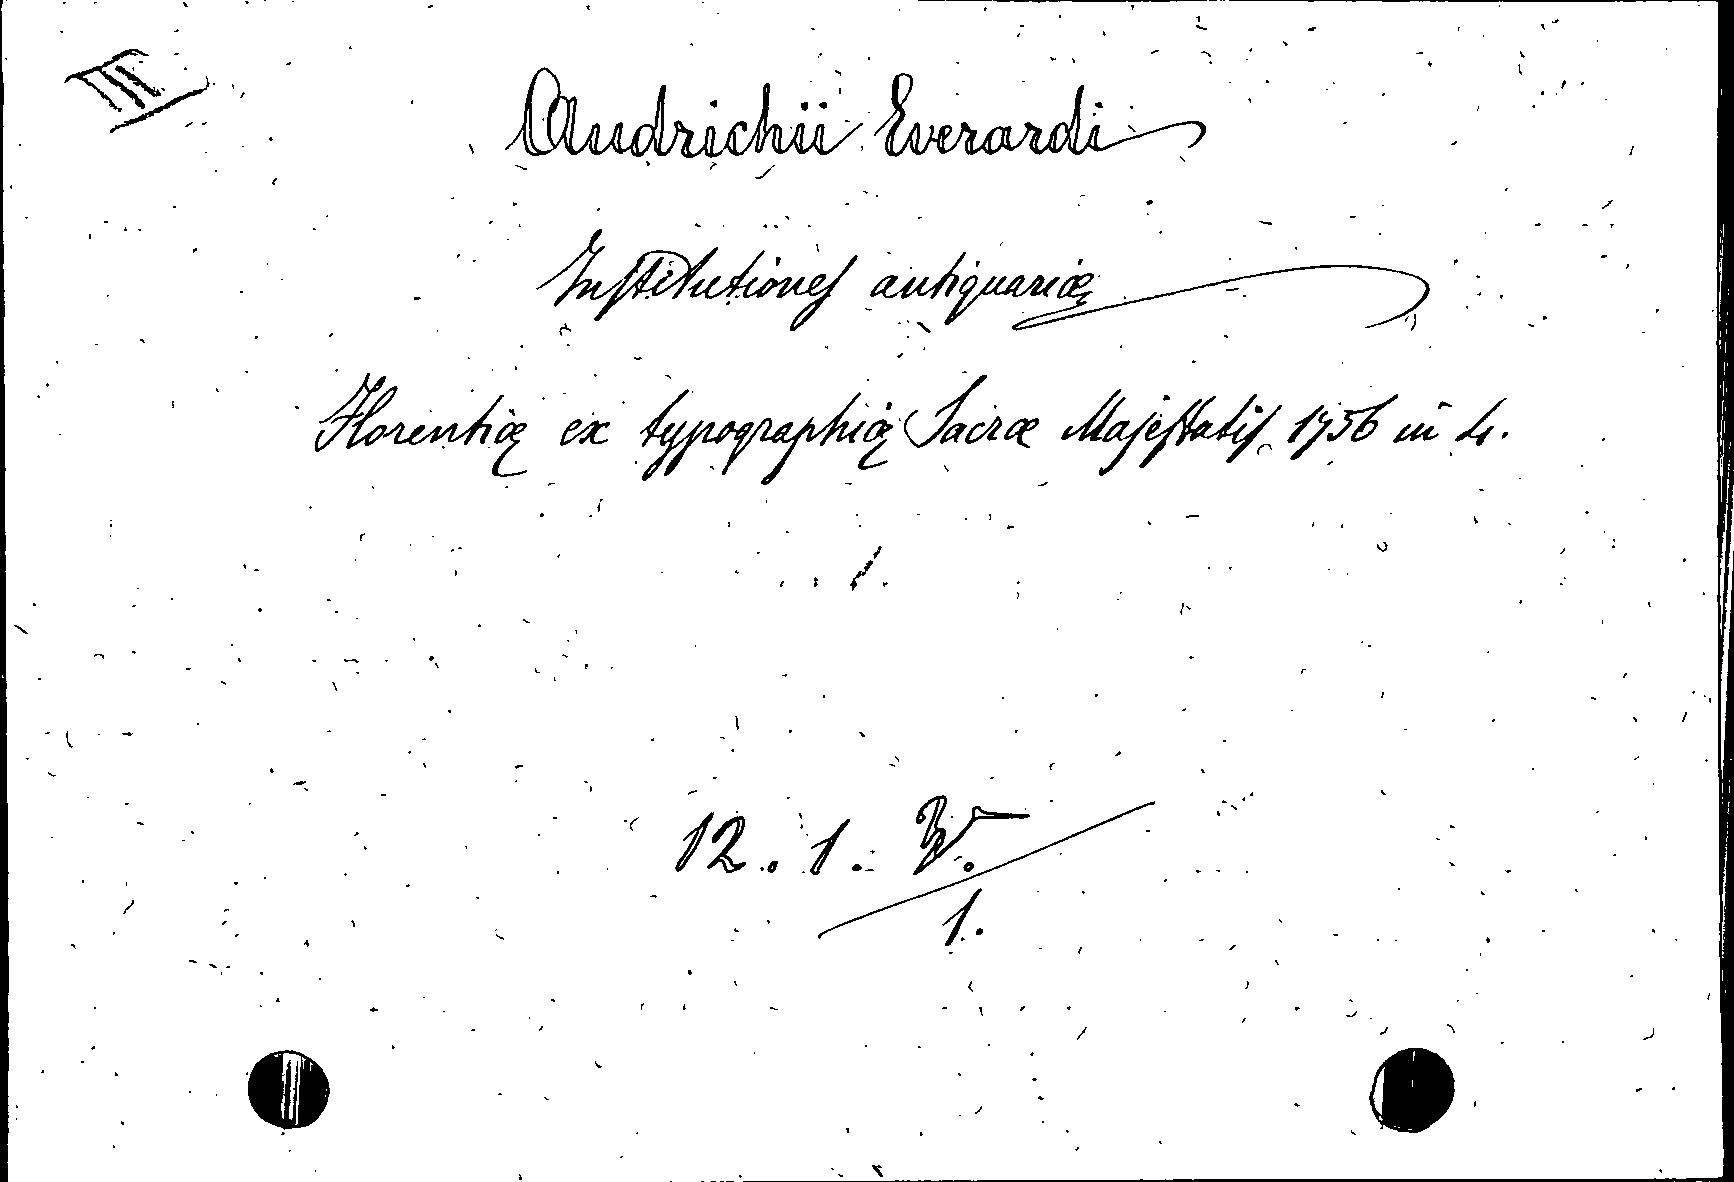 III
Audrichii Everardi
Institutiones antiquariæ
Florentiæ ex typographiæ Sacræ Majestatis 1756 in 4.
12. 1. W.
1.